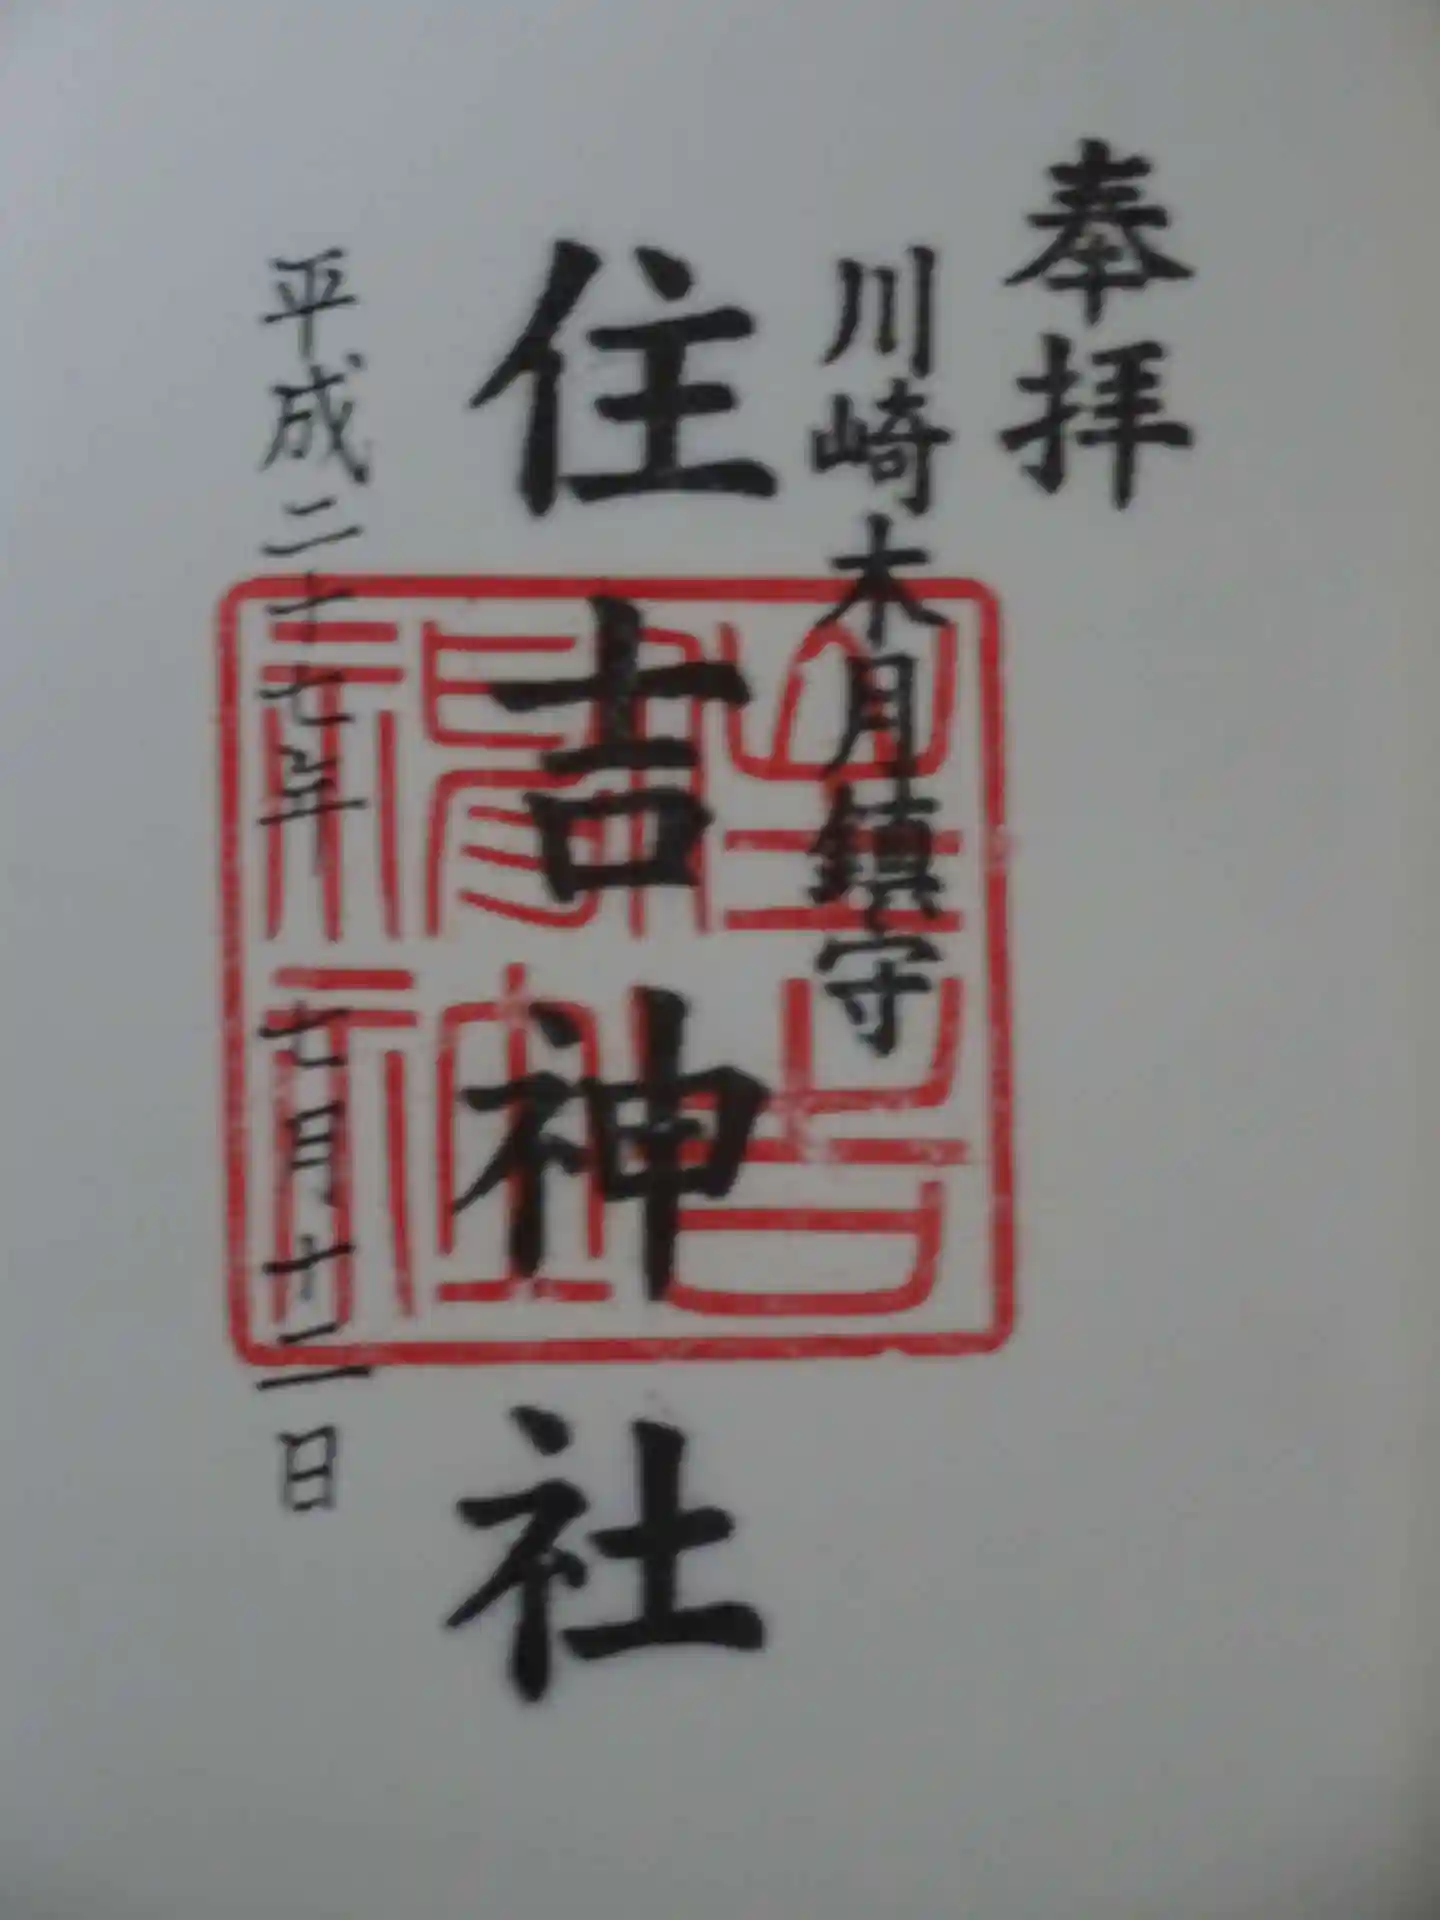 奉拝
川崎木月鎮守
住吉神社
平成二十七年 七月十二日